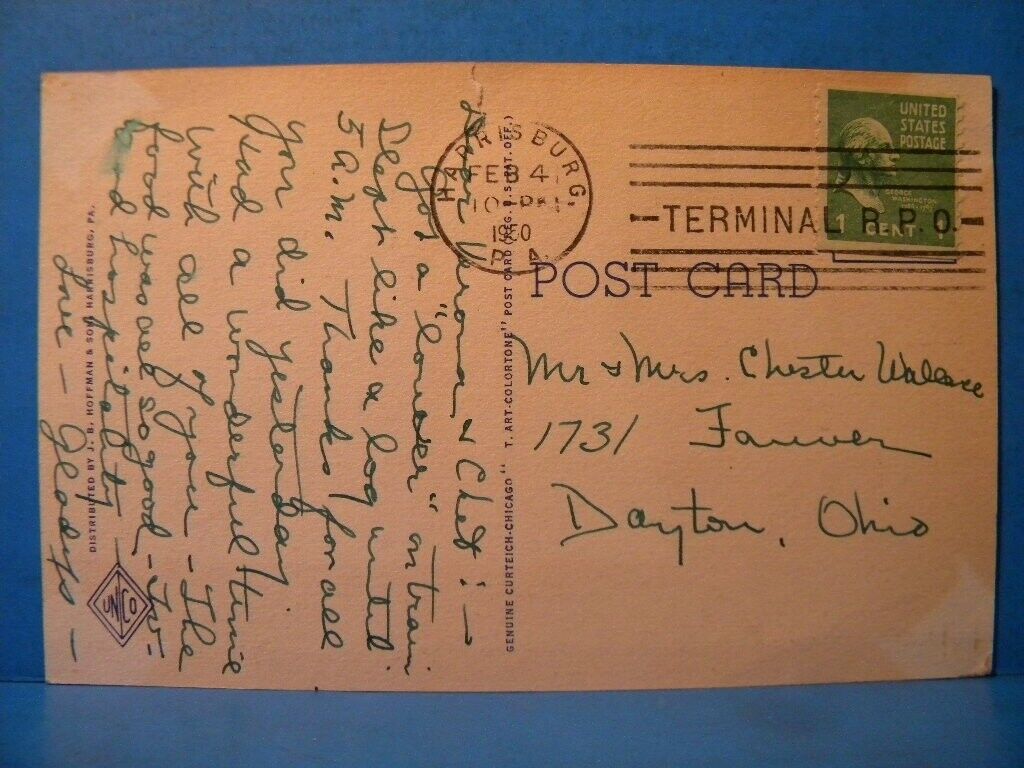 Dear Verona & Chet :—
Got a "lower" on train
Slept like a log until
5 A.M. Thanks for all
you did yesterday.
Glad a wonderful time
with all of you – The
food was all so good –
and hospitality –
Love – Gladys –
DISTRIBUTED BY J. B. HOFFMAN & SONS HARRISBURG, PA.
UN CO
GENUINE CURTEICH-CHICAGO "C. T. ART-COLORTONE" POST CARD (REG. U. S. PAT. OFF.)
HARRISBURG,
FEB 4
10 PM
1950
PA
TERMINAL R.P.O.
UNITED
STATES
POSTAGE
GEORGE
WASHINGTON
1 CENT 1
POST CARD
Mr & Mrs. Chester Wallace
1731 Fauver
Dayton, Ohio